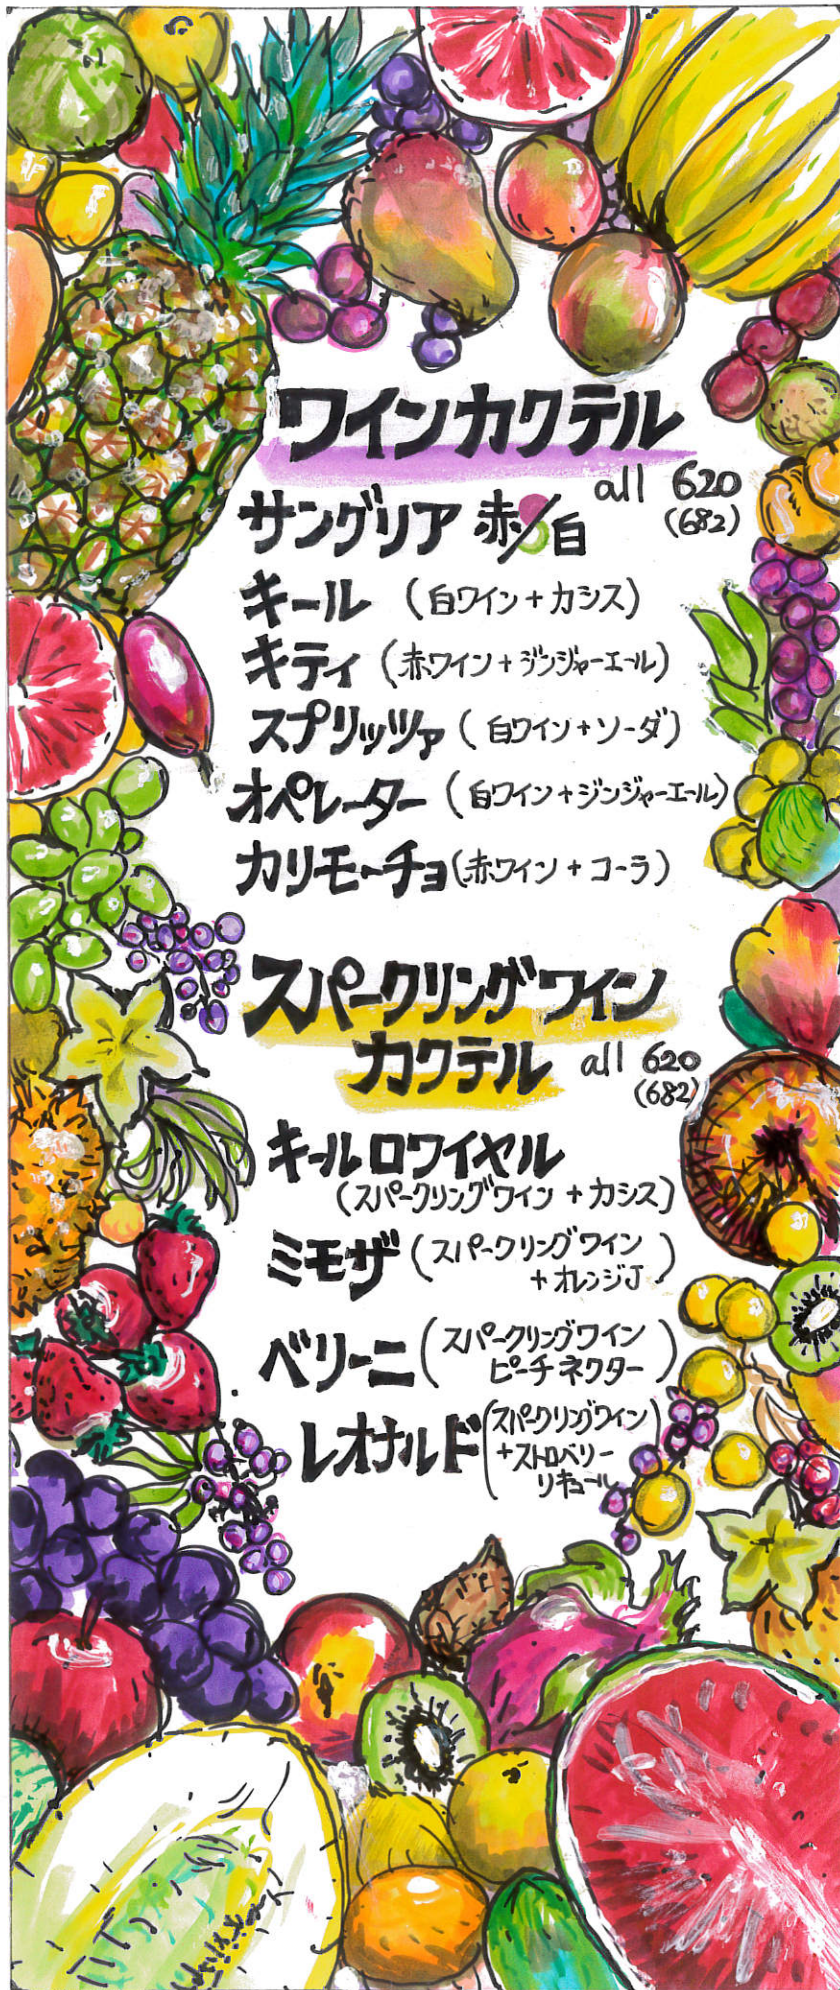 ワインカクテル
all 620
(682)
サングリア 赤/白
キール (白ワイン+カシス)
キティ (赤ワイン+ジンジャーエール)
スプリッツァ (白ワイン+ソーダ)
オペレーター (白ワイン+ジンジャーエール)
カリモーチョ (赤ワイン+コーラ)
スパークリングワイン
カクテル all 620
(682)
キールロワイヤル
(スパークリングワイン+カシス)
ミモザ (スパークリングワイン
+オレンジJ)
ベリーニ (スパークリングワイン
ピーチネクター)
レオナルド (スパークリングワイン
+ストロベリー
リキュール)